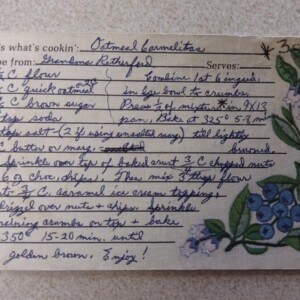 's what's cookin': Oatmeal Carmelitas * 3
pe from: Grandma Rutherford Serves:
C flour Combine 1st 6 ingred.
C quick oatmeal in lge bowl to crumbs.
C brown sugar Press ½ of mixture in 9X13
tsp soda pan. Bake at 325° 5-8 min
tsp salt (2 if using unsalted marg) till lightly
C butter or marg. browned.
Sprinkle over top of baked crust ¾ C chopped nuts
6 oz choc. chips. Then mix 3 tbsp flour
to ¾ C. caramel ice cream topping,
drizzled over nuts + chips. Sprinkle
remaining crumbs on top + bake
350° 15-20 min. until
golden brown. Enjoy!